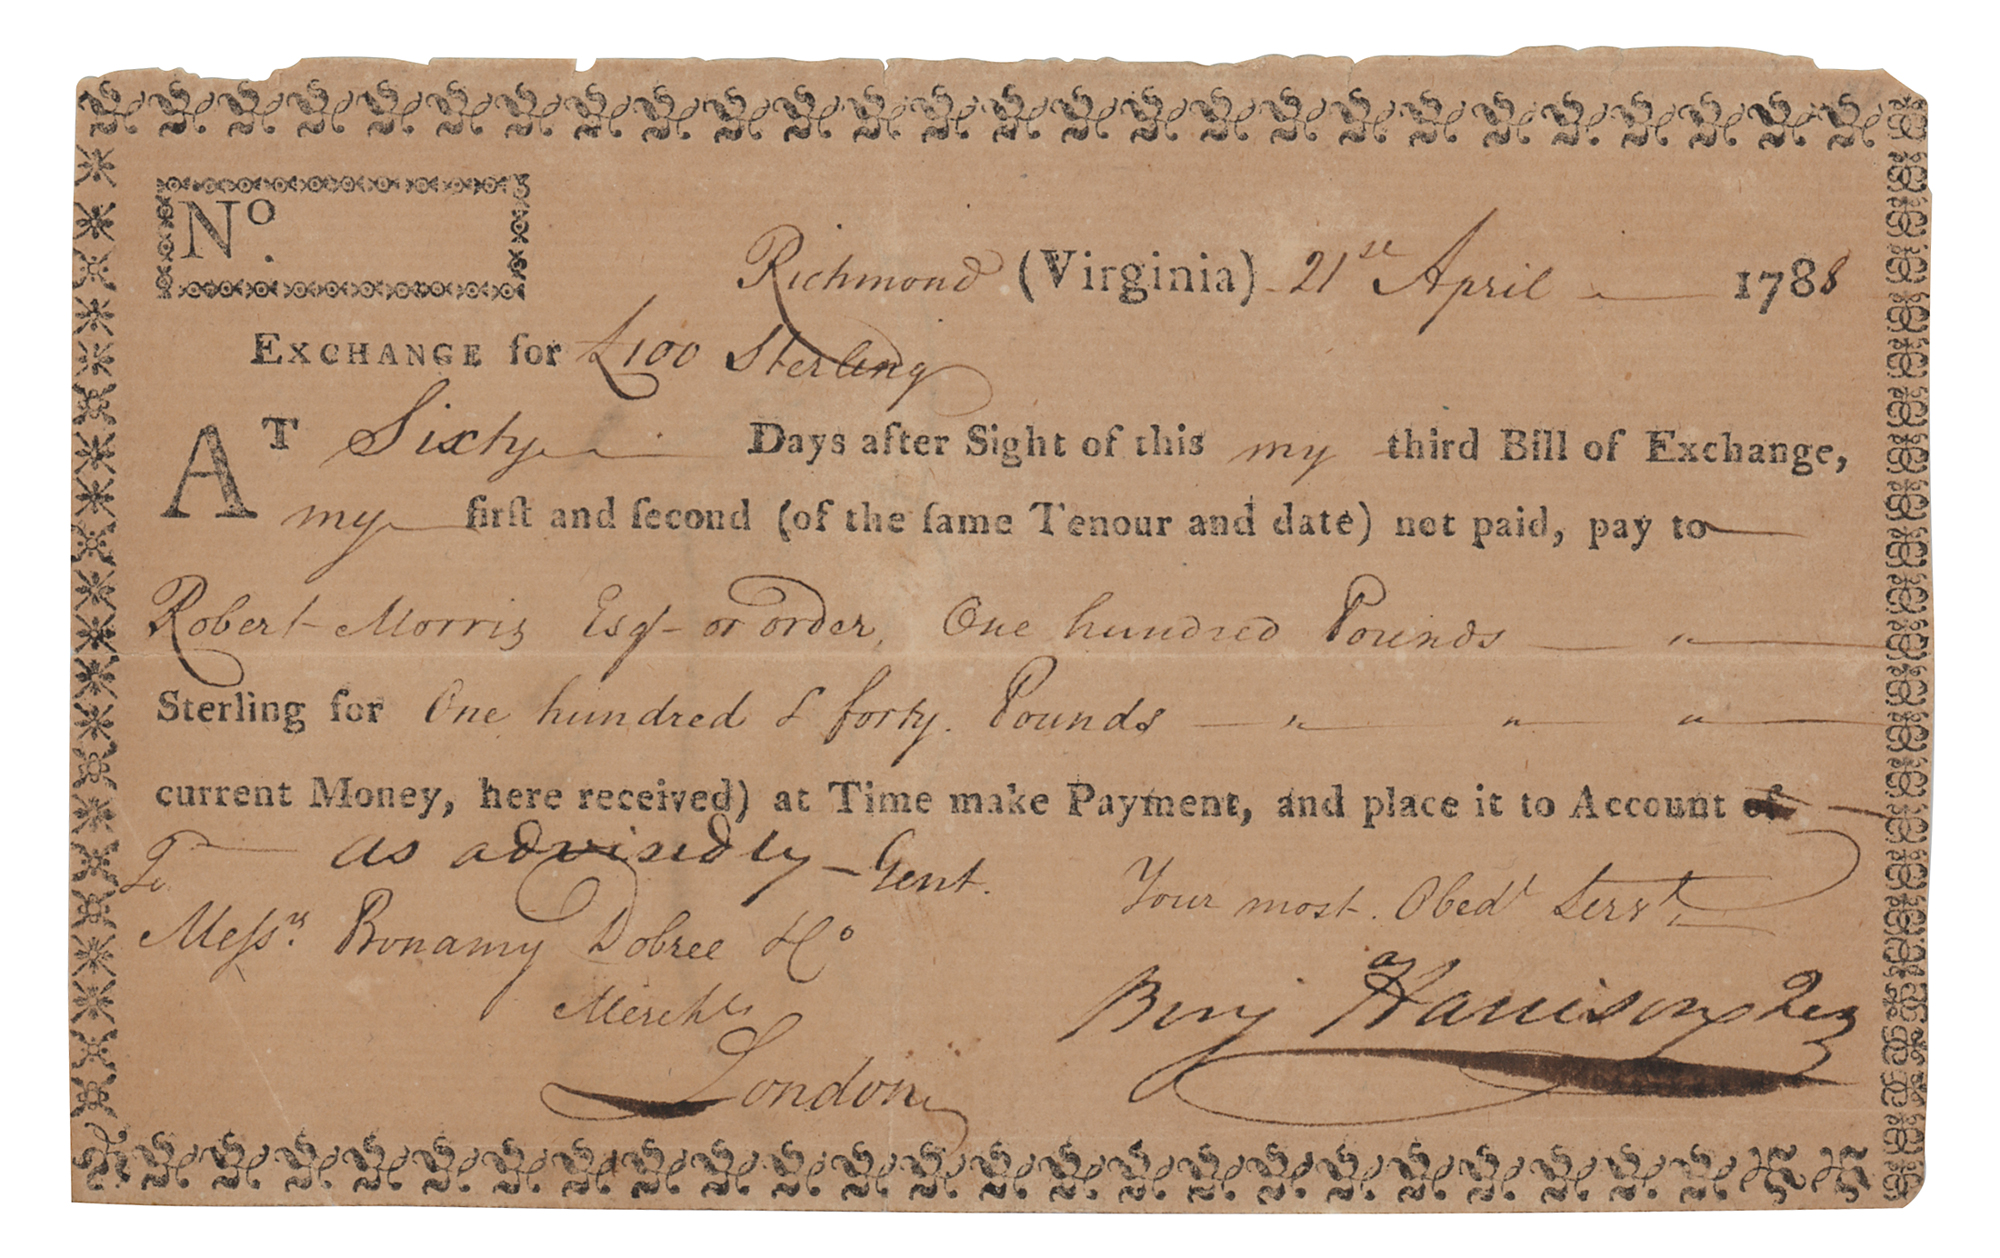 No.
Richmond (Virginia) 21st April 1788
EXCHANGE for £100 Sterling
AT Sixty Days after Sight of this my third Bill of Exchange,
my firſt and ſecond (of the ſame Tenour and date) not paid, pay to
Robert Morris Esqr or order, One hundred Pounds
Sterling for One hundred & forty Pounds
current Money, here received) at Time make Payment, and place it to Account of
as advised by Gent.
To
Your most Obedt Servt
Meſsrs Bonamy Dobree & Co
Benj Harrison Jr
Merchts
London